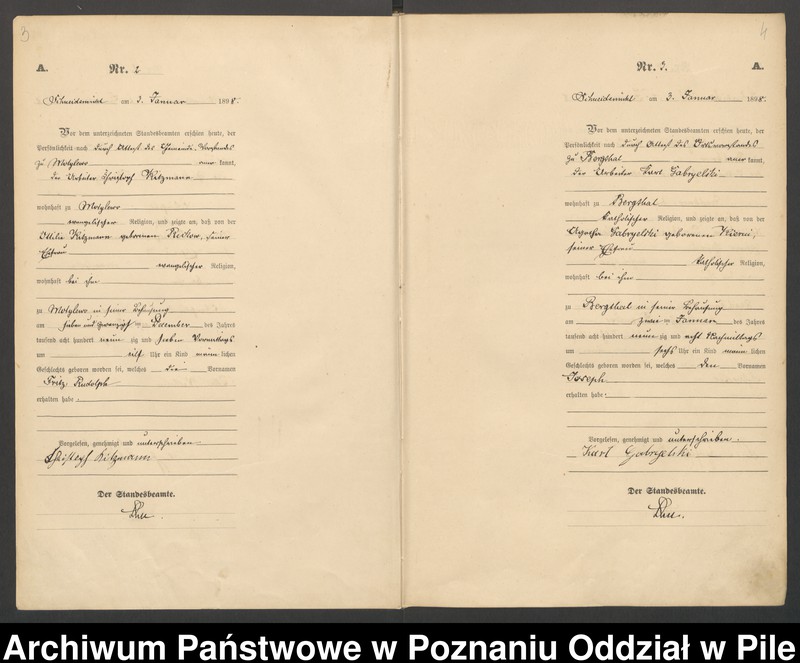 3
A.
Nr. 2
Schneidemühl am 3. Januar 1898.
Vor dem unterzeichneten Standesbeamten erschien heute, der
Persönlichkeit nach durch Attest des Gemeinde-Vorstandes
zu Motylewo anerkannt,
der Arbeiter Christoph Kitzmann
wohnhaft zu Motylewo
evangelischer Religion, und zeigte an, daß von der
Ottilie Kitzmann geborenen Redlow, seiner
Ehefrau
evangelischer Religion,
wohnhaft bei ihm
zu Motylewo in seiner Behausung
am sieben und zwanzigsten December des Jahres
tausend acht hundert neunzig und sieben Vormittags
um elf Uhr ein Kind männlichen
Geschlechts geboren worden sei, welches die Vornamen
Fritz Rudolph
erhalten habe.
Vorgelesen, genehmigt und unterschrieben
Christoph Kitzmann
Der Standesbeamte.
4
Nr. 3.
A.
Schneidemühl am 3. Januar 1898.
Vor dem unterzeichneten Standesbeamten erschien heute, der
Persönlichkeit nach durch Attest des
zu Bergthal anerkannt,
der Arbeiter Karl Gabryelski
wohnhaft zu Bergthal
katholischer Religion, und zeigte an, daß von der
Agathe Gabryelski geborenen
seiner Ehefrau
katholischer Religion,
wohnhaft bei ihm
zu Bergthal in seiner Behausung
am zweiten Januar des Jahres
tausend acht hundert neunzig und acht Nachmittags
um sechs Uhr ein Kind männlichen
Geschlechts geboren worden sei, welches den Vornamen
Joseph
erhalten habe.
Vorgelesen, genehmigt und unterschrieben.
Karl Gabryelski
Der Standesbeamte.
Archiwum Państwowe w Poznaniu Oddział w Pile